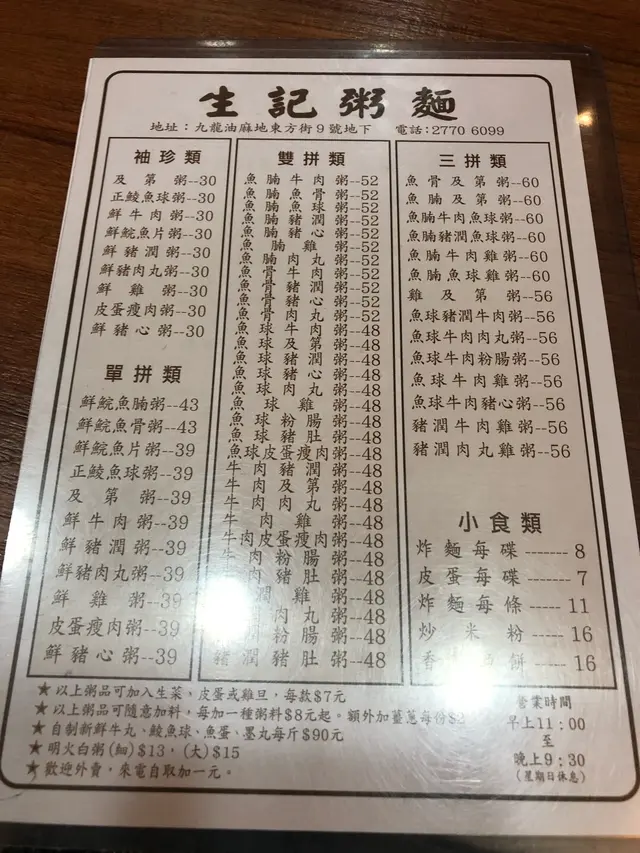 生記粥麵
地址：九龍油麻地東方街9號地下 電話:2770 6099
袖珍類
及第粥--30
正鯪魚球粥--30
鮮牛肉粥--30
鮮鯇魚片粥--30
鮮豬潤粥--30
鮮豬肉丸粥--30
鮮雞粥--30
皮蛋瘦肉粥--30
鮮豬心粥--30
單拼類
鮮鯇魚腩粥--43
鮮鯇魚骨粥--43
鮮鯇魚片粥--39
正鯪魚球粥--39
及第粥--39
鮮牛肉粥--39
鮮豬潤粥--39
鮮豬肉丸粥--39
鮮雞粥--39
皮蛋瘦肉粥--39
鮮豬心粥--39
雙拼類
魚腩牛肉粥--52
魚腩魚骨粥--52
魚腩魚球粥--52
魚腩豬潤粥--52
魚腩豬心粥--52
魚腩雞粥--52
魚腩肉丸粥--52
魚骨牛肉粥--52
魚骨豬潤粥--52
魚骨豬心粥--52
魚骨肉丸粥--52
魚球牛肉粥--48
魚球及第粥--48
魚球豬潤粥--48
魚球豬心粥--48
魚球肉丸粥--48
魚球雞粥--48
魚球粉腸粥--48
魚球豬肚粥--48
魚球皮蛋瘦肉粥--48
牛肉豬潤粥--48
牛肉及第粥--48
牛肉肉丸粥--48
牛肉雞粥--48
牛肉皮蛋瘦肉粥--48
牛肉粉腸粥--48
肉豬肚粥--48
潤雞粥--48
肉丸粥--48
潤粉腸粥--48
豬潤豬肚粥--48
三拼類
魚骨及第粥--60
魚腩及第粥--60
魚腩牛肉魚球粥--60
魚腩豬潤魚球粥--60
魚腩牛肉雞粥--60
魚腩魚球雞粥--60
雞及第粥--56
魚球豬潤牛肉粥--56
魚球牛肉肉丸粥--56
魚球牛肉粉腸粥--56
魚球牛肉雞粥--56
魚球牛肉豬心粥--56
豬潤牛肉雞粥--56
豬潤肉丸雞粥--56
小食類
炸麵每碟-------8
皮蛋每碟-------7
炸麵每條-----11
炒米粉-----16
香餅-----16
★以上粥品可加入生菜、皮蛋或雞旦，每款$7元
★以上粥品可隨意加料，每加一種粥料$8元起。額外加薑蔥每份$2
★自制新鮮牛丸、鯪魚球、魚蛋、墨丸每斤$90元
★明火白粥(細)$13，(大)$15
★歡迎外賣，來電自取加一元。
營業時間
早上11：00
至
晚上9：30
(星期日休息)